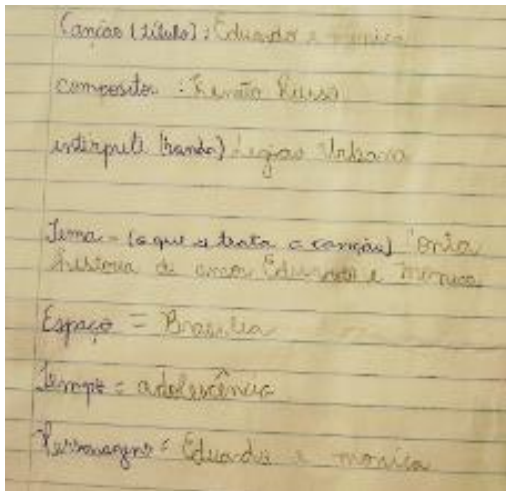 Canção (título): Eduardo e monica
compositor : Renato Russo
intérprete (banda) Legião Urbana
Tema - (o que se trata a canção) Conta
história de amor Eduardo e Mônica
Espaço = Brasília
Tempo = adolescência
Personagens = Eduardo e monica